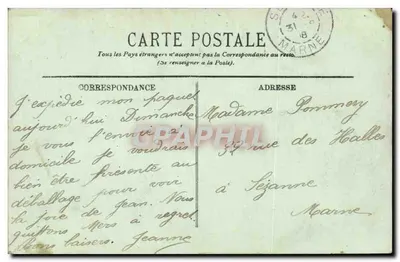 CARTE POSTALE
Tous les Pays étrangers n'acceptent pas la Correspondance au recto.
(Se renseigner à la Poste).
CORRESPONDANCE
J'expédie mon paquet
aujourd'hui Dimanche
Je vous l'envoie à
domicile Je voudrais
bien être présente au
déballage pour voir
la joie de Jean. Nous
quittons Mers à regret
Bons baisers. Jeanne
ADRESSE
Madame Pommery
rue des Halles
à Sézanne
Marne
MARNE
31